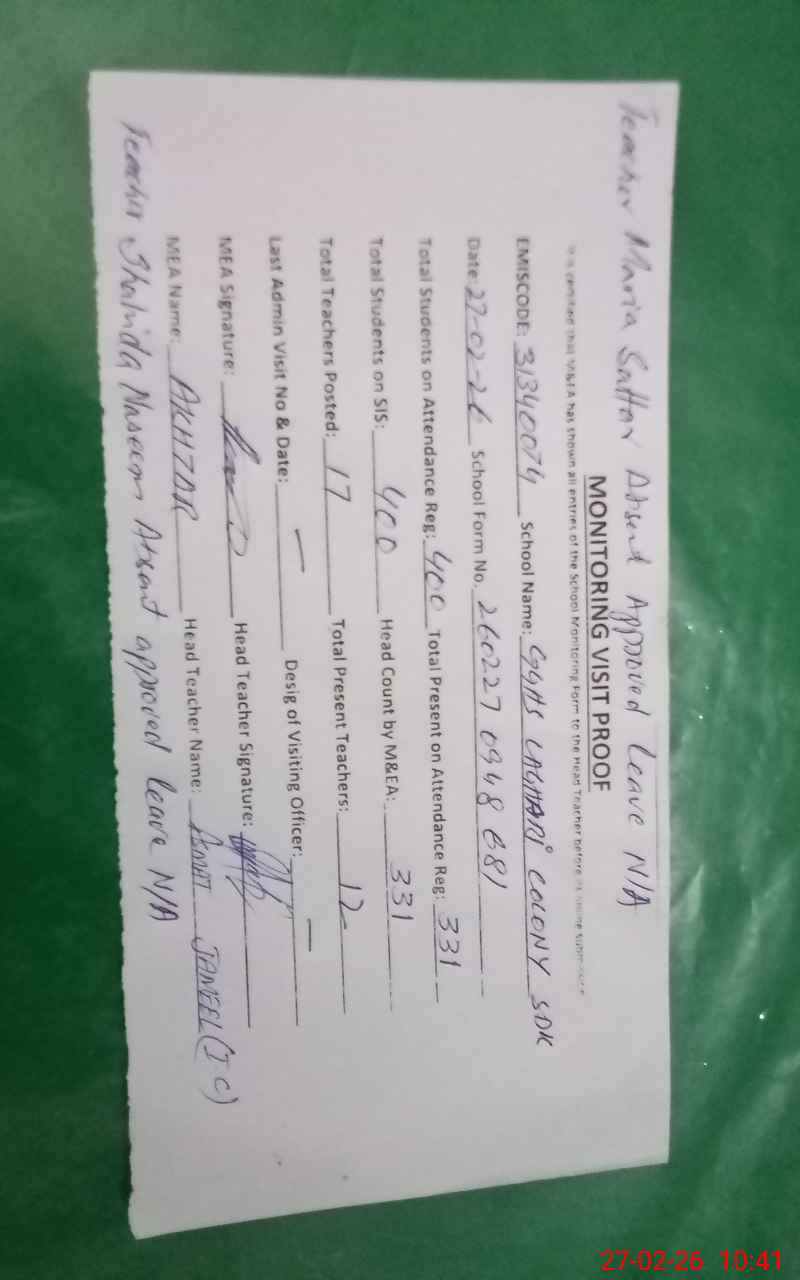 Teacher Maria Sattar Absent Approved leave N/A
MONITORING VISIT PROOF
It is certified that M&EA has shown all entries of the School Monitoring Form to the Head Teacher before its online submission
EMISCODE: 31340074 School Name: GGHS LAGHARI COLONY SDK
Date: 27-02-26 School Form No. 260227 0948 681
Total Students on Attendance Reg: 400 Total Present on Attendance Reg: 331
Total Students on SIS: 400 Head Count by M&EA: 331
Total Teachers Posted: 17 Total Present Teachers: 12
Last Admin Visit No & Date: — Desig of Visiting Officer: —
MEA Signature: Head Teacher Signature:
MEA Name: AKHTAR Head Teacher Name: JAMEEL (I C)
Teacher Shahida Naseem Absent approved leave N/A
27-02-26 10:41